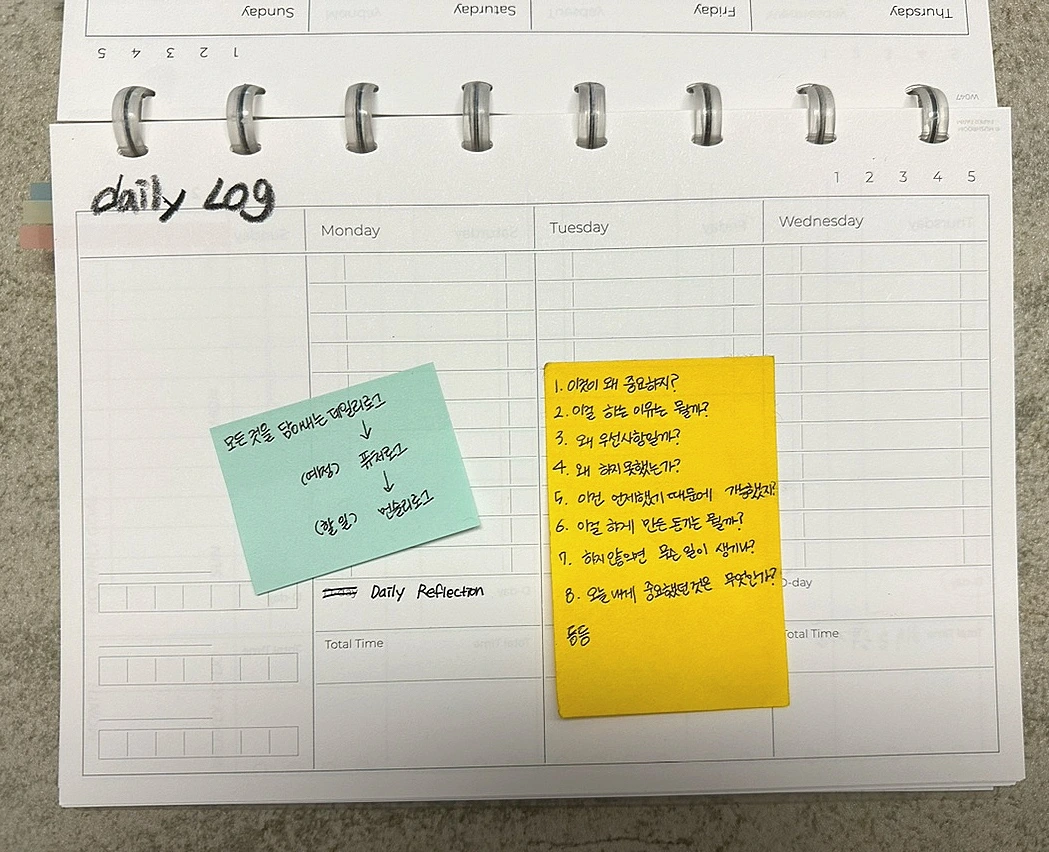 Sunday Saturday Friday Thursday
5 4 3 2 1
daily Log
1 2 3 4 5
Monday Tuesday Wednesday
모든 것을 담아내는 데일리로그
↓
(예정) 퓨처로그
↓
(할 일) 먼슬리로그
1. 이것이 왜 중요하지?
2. 이걸 하는 이유는 뭘까?
3. 왜 우선사항일까?
4. 왜 하지 못했는가?
5. 이건 언제했기 때문에 가능했지?
6. 이걸 하게 만든 동기는 뭘까?
7. 하지 않으면 무슨 일이 생기나?
8. 오늘 내게 중요했던 것은 무엇인가?
등등
Daily Reflection
D-day
Total Time
Total Time